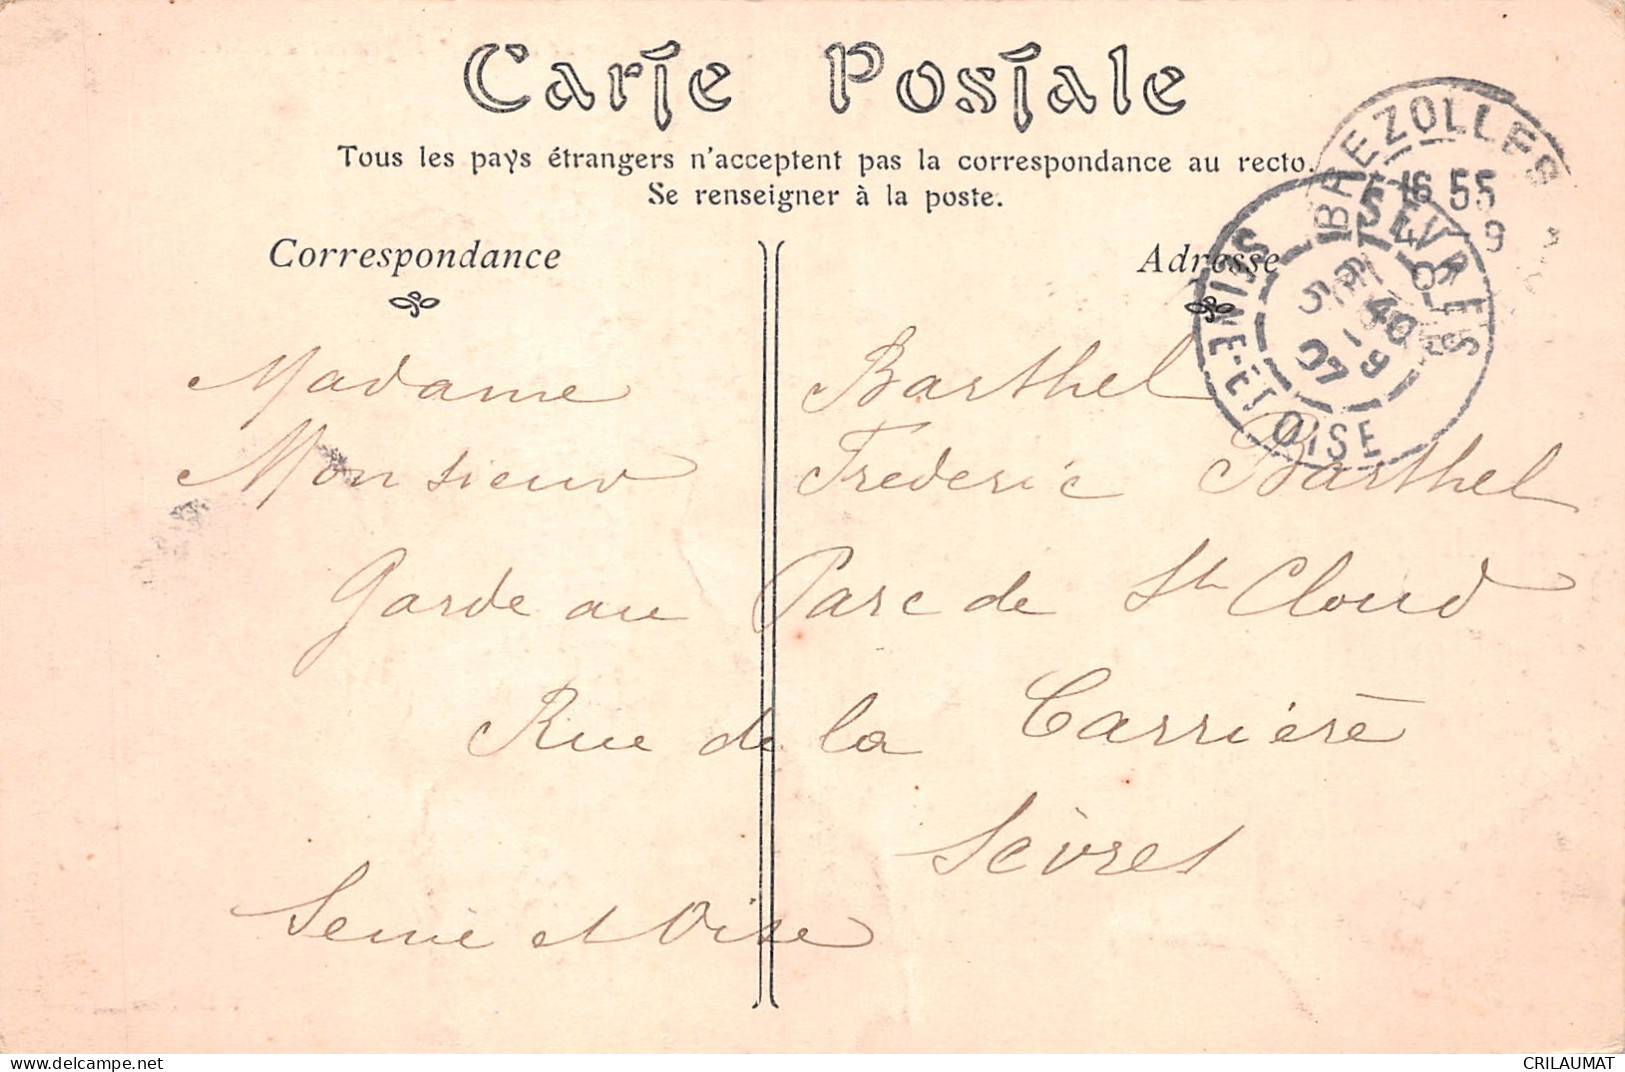 Carte Postale
Tous les pays étrangers n'acceptent pas la correspondance au recto.
Se renseigner à la poste.
Correspondance
Adresse
BREZOLLES
16 55
SÈVRES
SEINE-ET-OISE
Madame Barthel
Monsieur Frederic Barthel
Garde au Parc de St Cloud
Rue de la Carrière
Sèvres
Seine et Oise
www.delcampe.net
CRILAUMAT